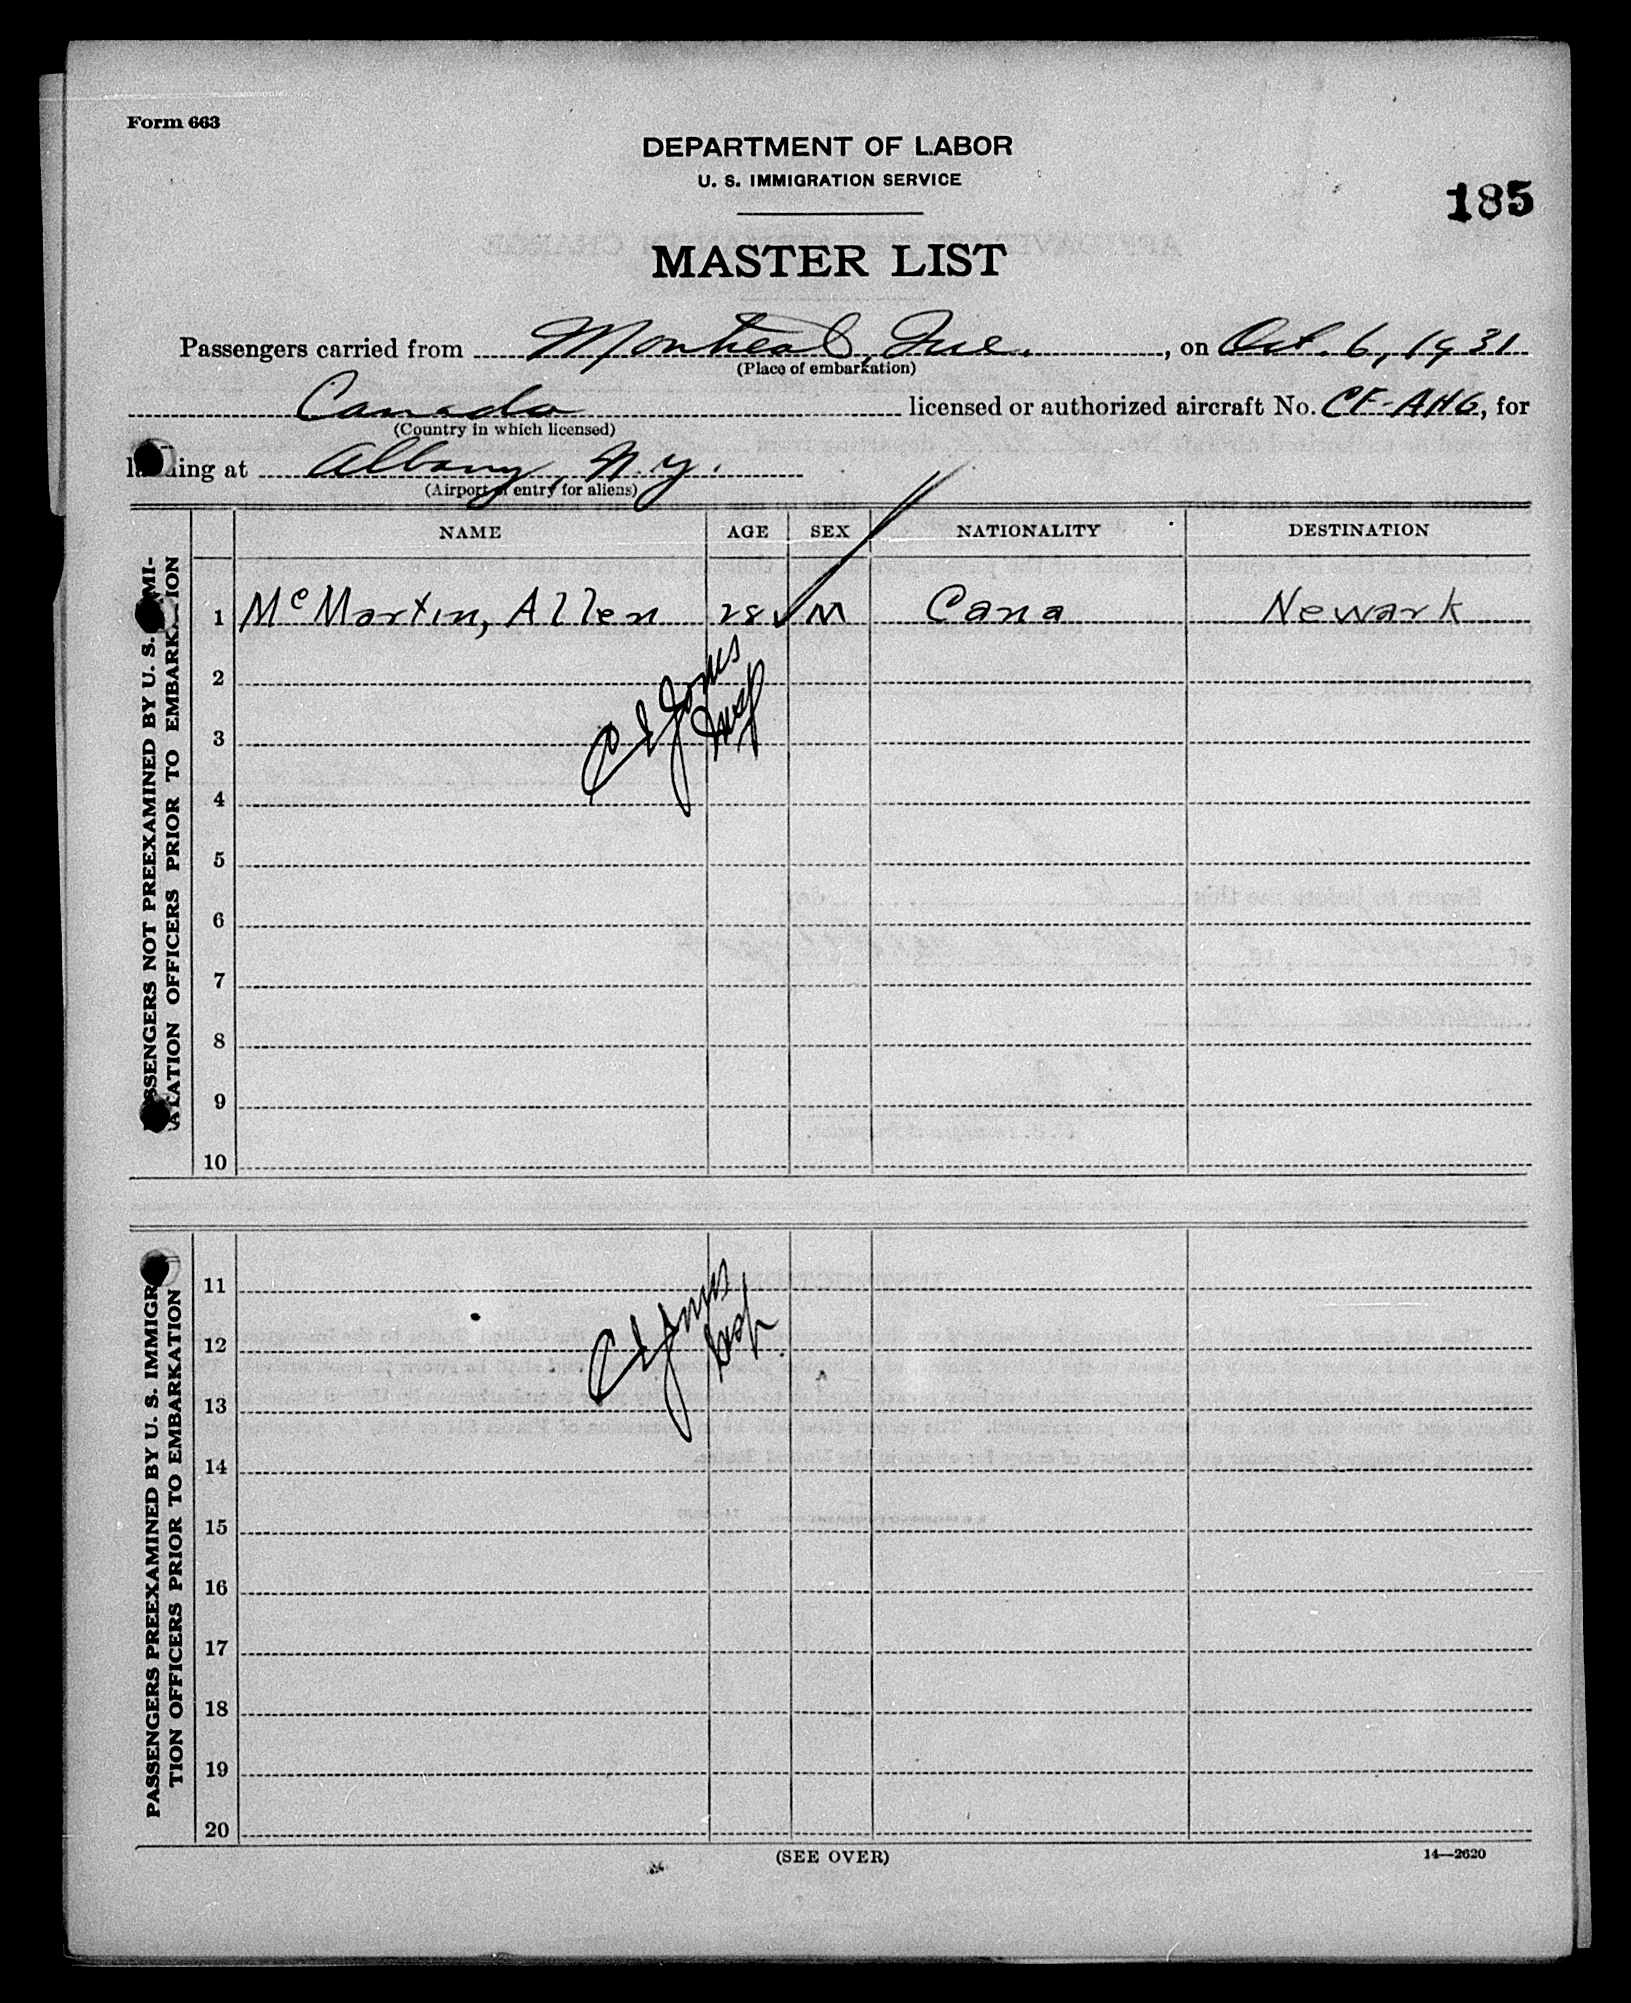 Form 663
DEPARTMENT OF LABOR
U. S. IMMIGRATION SERVICE
185
MASTER LIST
Passengers carried from Montreal, Que. , on Oct. 6, 1931
(Place of embarkation)
Canada licensed or authorized aircraft No. CF-AHG, for
(Country in which licensed)
landing at Albany, N.Y.
(Airport of entry for aliens)
NAME AGE SEX NATIONALITY DESTINATION
PASSENGERS NOT PREEXAMINED BY U. S. IMMI-
GRATION OFFICERS PRIOR TO EMBARKATION
1 McMartin, Allen 28 ✓ M Cana Newark
2
3
4
C E Jones
Insp
5
6
7
8
9
10
PASSENGERS PREEXAMINED BY U. S. IMMIGRA-
TION OFFICERS PRIOR TO EMBARKATION
11
12
13
C E Jones
Insp
14
15
16
17
18
19
20
(SEE OVER)
14—2620